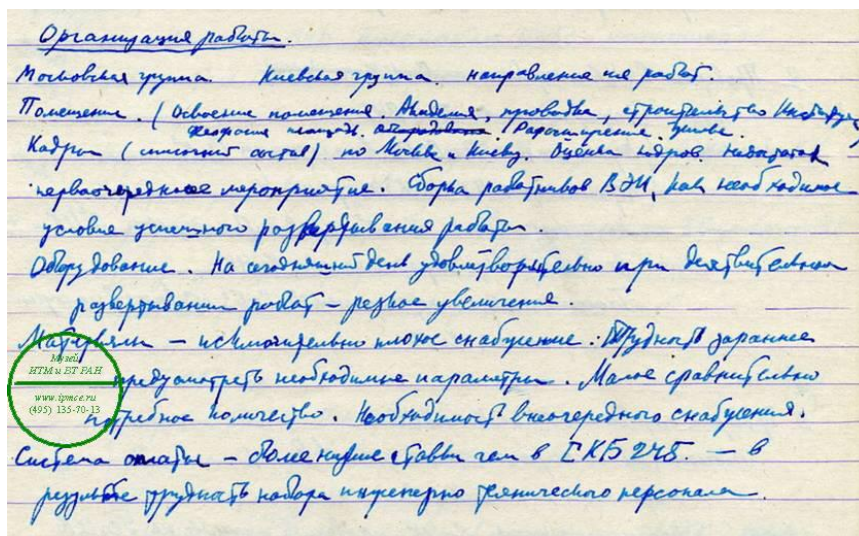 Организация работы.
Московская группа. Киевская группа. направление их работ.
Помещение. (Освоение помещения. Академия, проводка, строительство Института,
площадь. Расширение
Кадры (личный состав) по Москве и Киеву. Оценка кадров. Недостаток
первоочередное мероприятие. Сборка работников ВЭИ, как необходимое
условие успешного развертывания работы.
Оборудование. На сегодняшний день удовлетворительно при действительном
развертывании работ – резкое увеличения.
Материалы – исключительно плохое снабжение. Трудность заранее
предусмотреть необходимые параметры. Малое сравнительно
потребное количество. Необходимость внеочередного снабжения.
Система оплаты – более низшие ставки чем в СКБ 245. – в
результате трудность набора инженерно технического персонала.
Музей
ИТМ и ВТ РАН
www.ipmce.ru
(495) 135-70-13